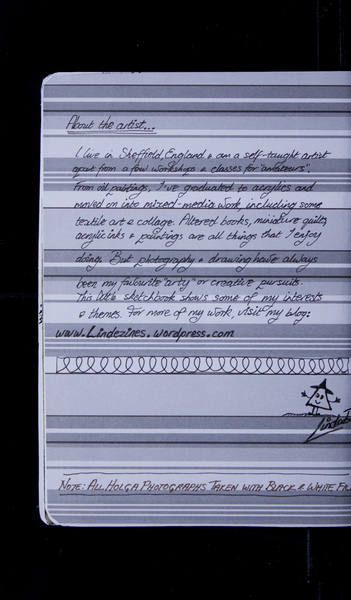 About the artist...
I live in Sheffield, England & am a self-taught artist
apart from a few workshops & classes for "amateurs".
From oil paintings, I've graduated to acrylics and
moved on into mixed-media work including some
textile art & collage. Altered books, miniature quilts,
acrylic inks & paintings are all things that I enjoy
doing. But photography & drawing have always
been my favourite "arty" or creative pursuits.
This little sketchbook shows some of my interests
& themes. For more of my work, visit my blog:
www.Lindezines.wordpress.com
NOTE: ALL HOLGA PHOTOGRAPHS TAKEN WITH BLACK & WHITE